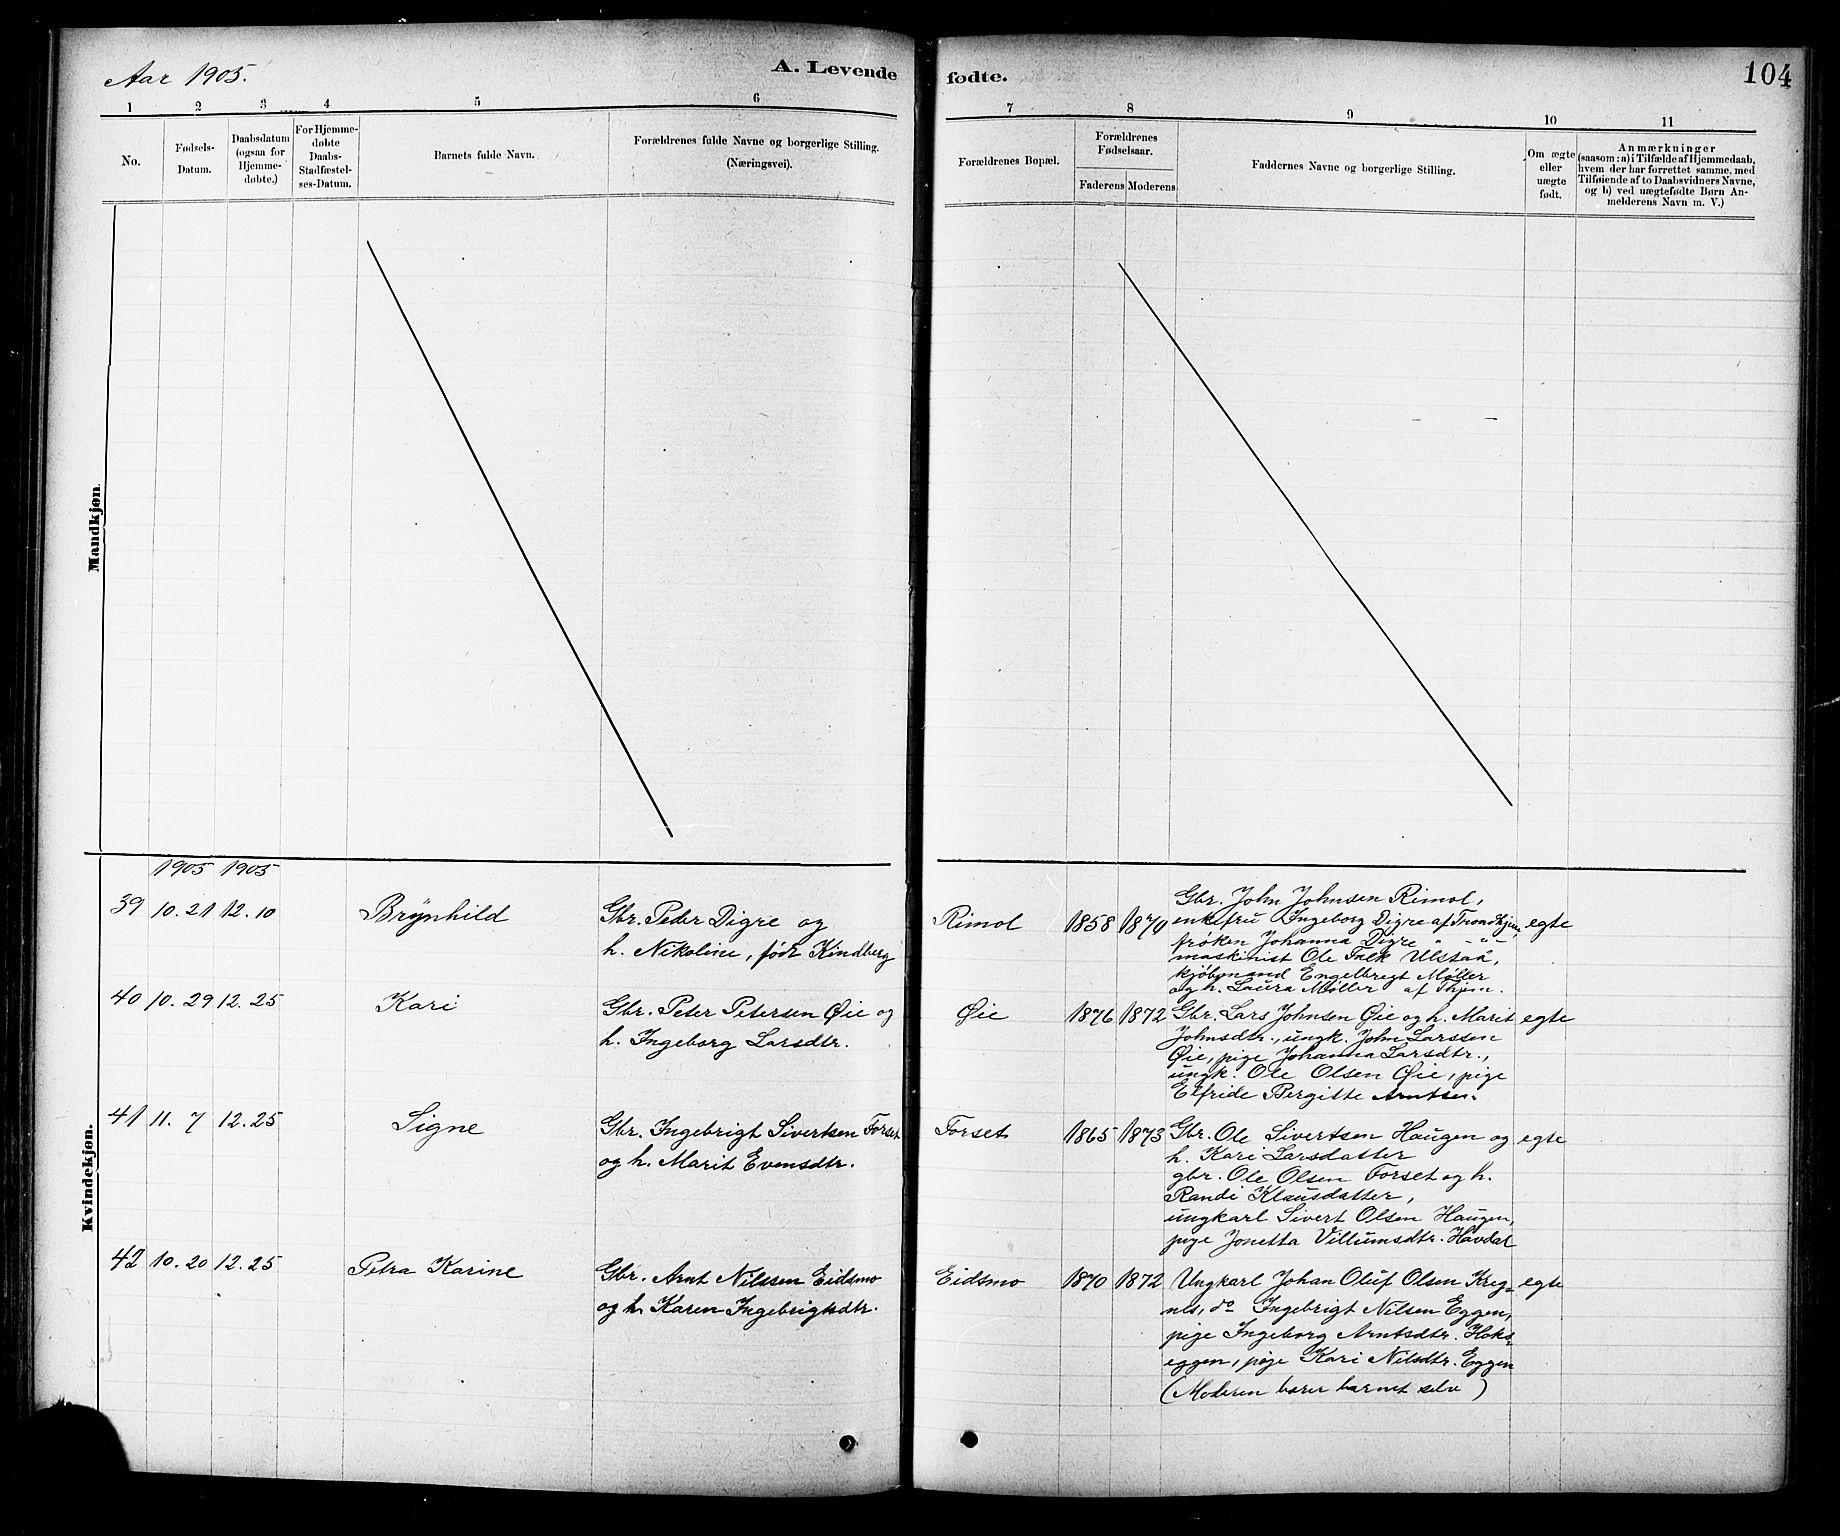 Aar 1905.
A. Levende
fødte.
104
1 2 3 4 5 6
7 8 9 10 11
No.
Fødsels-
Datum.
Daabsdatum
(ogsaa for
Hjemme-
døbte.)
For Hjemme-
døbte
Daabs-
Stadfæstel-
ses-Datum.
Barnets fulde Navn.
Forældrenes fulde Navne og borgerlige Stilling.
(Næringsvei).
Forældrenes Bopæl.
Forældrenes
Fødselsaar.
Faderens Moderens
Faddernes Navne og borgerlige Stilling.
Om ægte
eller
uægte
født.
Anmærkninger
(saasom: a) i Tilfælde af Hjemmedaab,
hvem der har forrettet samme, med
Tilføiende af to Daabsvidners Navne,
og b) ved uægtefødte Børn An-
melderens Navn m. V.)
Mandkjøn.
Kvindekjøn.
1905 1905
39 10. 21 12. 10 Brynhild
Gbr. Peder Digre og
h. Nikoline, født Kindberg
Rimol 1858 1870
Gbr. John Johnsen Rimol,
enkefru Ingeborg Digre af Trondhjem, egte
frøken Johanna Digre " - "
maskinist Ole Falk Ulstaa,
kjøbmand Engelbregt Møller
og h. Laura Møller af Thjem.
40 10. 29 12. 25 Kari
Gbr. Peter Petersen Øie og
h. Ingeborg Larsdtr.
Øie 1876 1872
Gbr. Lars Johnsen Øie og h. Marit egte
Johnsdtr., ungk. John Larssen
Øie, pige Johanna Larsdtr.,
ungk. Ole Olsen Øie, pige
Elfride Bergitte Arntsen.
41 11. 7 12. 25 Signe
Gbr. Ingebrigt Sivertsen Forset
og h. Marit Evensdtr.
Forset 1865 1873
Gbr. Ole Sivertsen Haugen og egte
h. Kari Larsdatter
gbr. Ole Olsen Forset og h.
Randi Klausdatter,
ungkarl Sivert Olsen Haugen,
pige Jonetta Villumsdtr. Havdal
42 10. 20 12. 25 Petra Karine
Gbr. Arnt Nilssen Eidsmo
og h. Karen Ingebrigtsdtr.
Eidsmo 1870 1872
Ungkarl Johan Oluf Olsen Kreg- egte
nes, do Ingebrigt Nilsen Eggen,
pige Ingeborg Arntsdtr. Hoks-
eggen, pige Kari Nilsdtr. Eggen
(Moderen barer barnet selv)